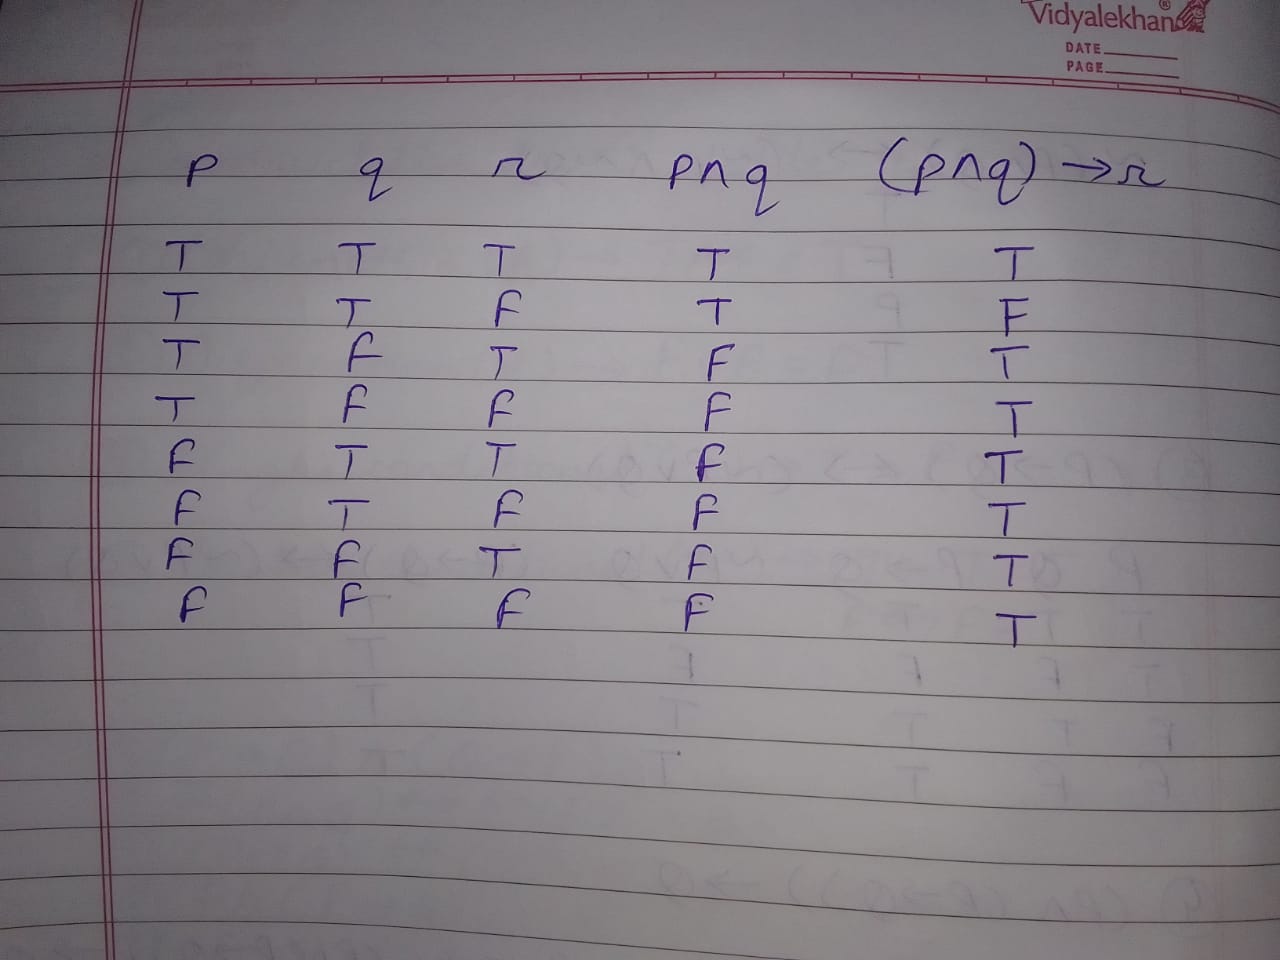 Vidyalekhan®
DATE
PAGE
p q r p∧q (p∧q) → r
T T T T T
T T F T F
T F T F T
T F F F T
F T T F T
F T F F T
F F T F T
F F F F T